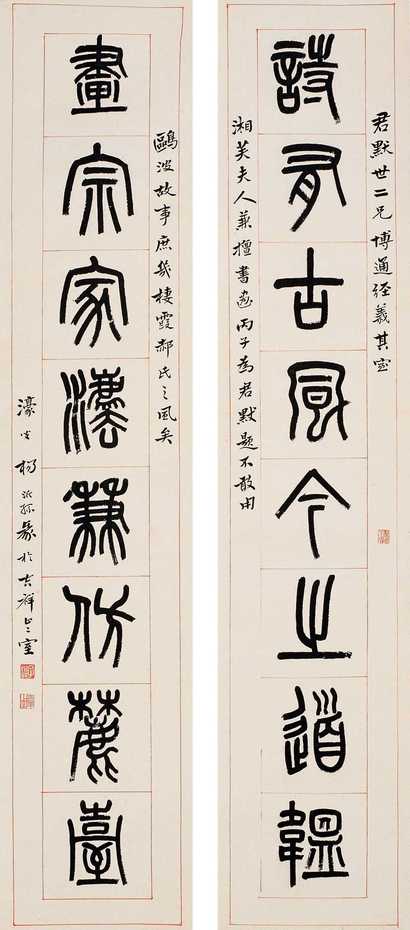 君默世二兄博通經義其室
詩有古風今之道韞
湘芙夫人兼擅書畫丙子為君默題不敢用
鷗波故事庶幾棲霞郝氏之風矣
畫宗家灋兼仿麓臺
濠叟楊沂孫篆於吉祥止止室